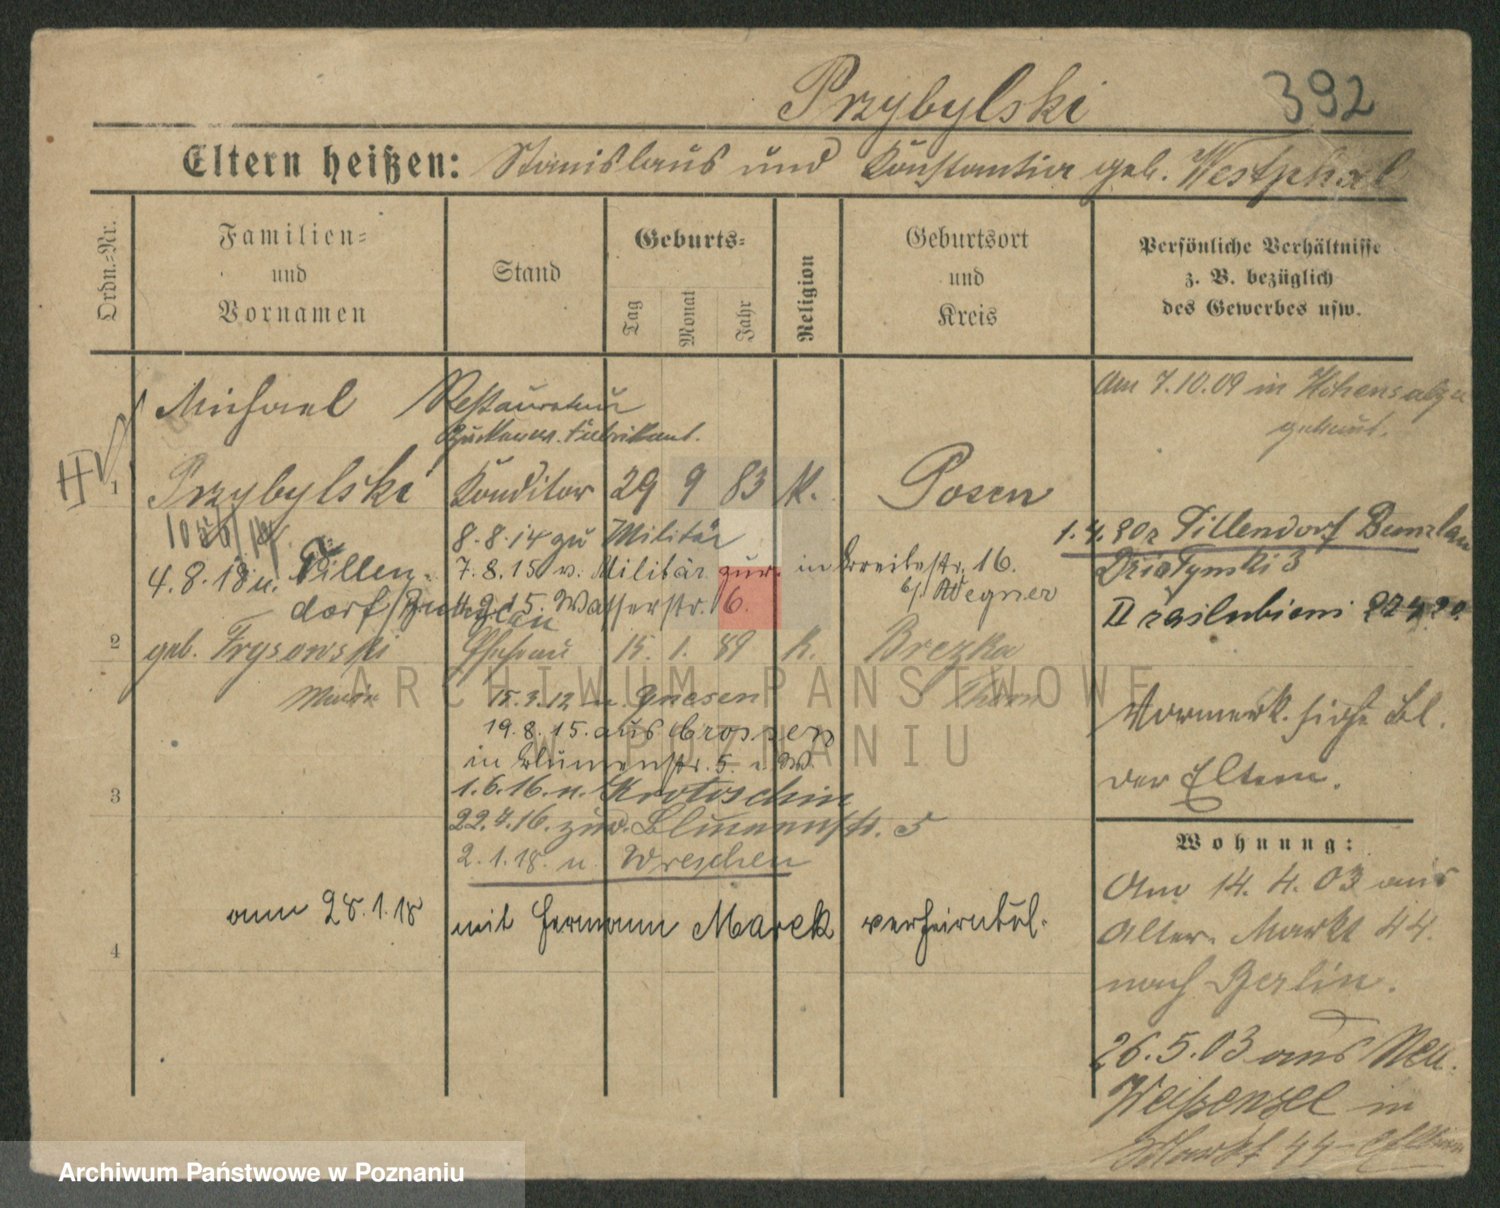 Przybylski 392
Eltern heißen: Stanislaus und Konstantia geb. Westphal
Ordn.-Nr.
Familien-
und
Vornamen
Stand
Geburts-
Tag
Monat
Jahr
Religion
Geburtsort
und
Kreis
Persönliche Verhältnisse
z. B. bezüglich
des Gewerbes usw.
Michael Restaurateur
Zuckerw. Fabrikant.
Am 7.10.09 in Hohensalza
getraut.
1 Przybylski Konditor 29 9 83 K. Posen
8.8.14 zu Militär
1.4.20 z Tillendorf Bunzlau
4.8.18 n. Tillen-
dorf/Bunzlau
7.8.15 v. Militär zur. in Breitestr. 16.
b/. Wegner
4.9.15. Wasserstr. 6.
Działynski 3
II zaślubieni
2 geb. Frysowski Ehefrau 15. 1. 89 K. Brezka
Maria
15.3.12 n. Gnesen
Thorn
19.8.15. aus Crossen
in Blumenstr. 5. i. W.
Vormerk. siehe Bl.
der Eltern.
3
1.6.16. n. Krotoschin
22.7.16. zur. Blumenstr. 5
2.1.18. n. Wreschen
am 28.1.18 mit Hermann Marek verheiratet.
4
Wohnung:
Am 14. 4. 03 aus
Alter Markt 44.
nach Berlin.
26.5.03 aus Neu
Weißensee in
Markt 44 Eltern
ARCHIWUM PAŃSTWOWE
W POZNANIU
Archiwum Państwowe w Poznaniu